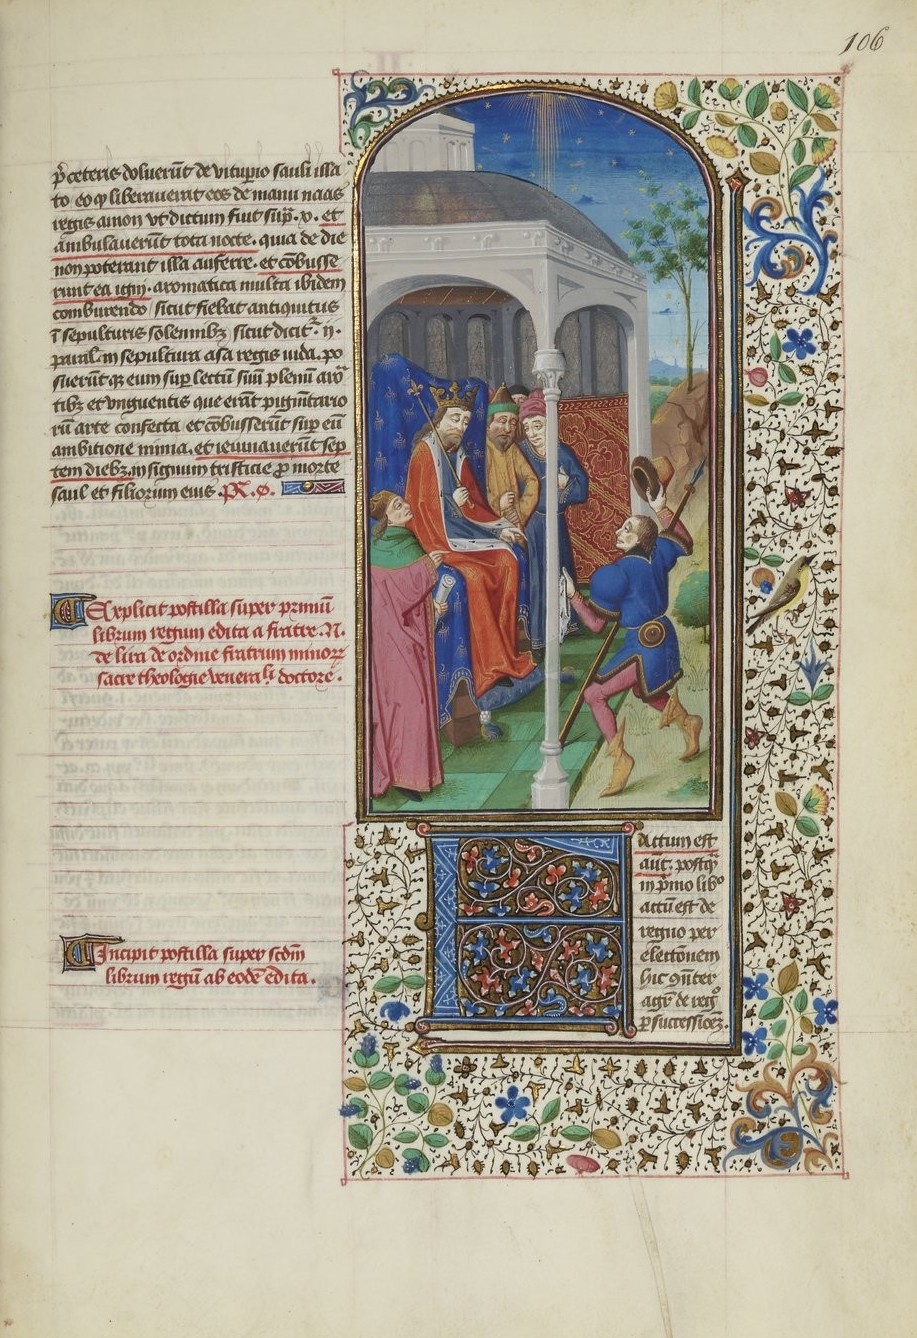 106
p̄ ceteris doluerūt de vituꝑio sauli illa
to eo ꝙ liberauerat eos de manu naas
regis amon vt dictum fiut sup̄. v. et
ambulauerūt tota nocte. quia de die
non poterant illa auferre. et cōbusse
runt ea igni. aromatica multa ibidem
comburendo / sicut fiebat antiquitus
ī sepulturis solennibꝫ / sicut dicit̄ .ij.
paral̄. in sepultura asa regis iuda. po
suerūt qꝫ eum suꝑ lectū suū plenū aro
tibꝫ et vnguentis que erāt pigmētario
rū arte confecta. et cōbusserūt suꝑ eū
ambitione nimia. et ieiunauerūt sep
tem diebꝫ. in signum tristicie ꝓ morte
saul et filiorum eius.
Explicit postilla super primū
librum regum edita a fratre .N.
de lira de ordine fratrum minorꝝ
sacre theologie venera
doctore.
Incipit postilla super scd̄m
librum regū ab eodē edita.
Factum est
aut̄. postqͣꝫ
in p̄mo libͦ
actū est de
regno per
electionem
hic ꝯn̄ter
agit̄ de regͦ
ꝑ successiōeꝫ.